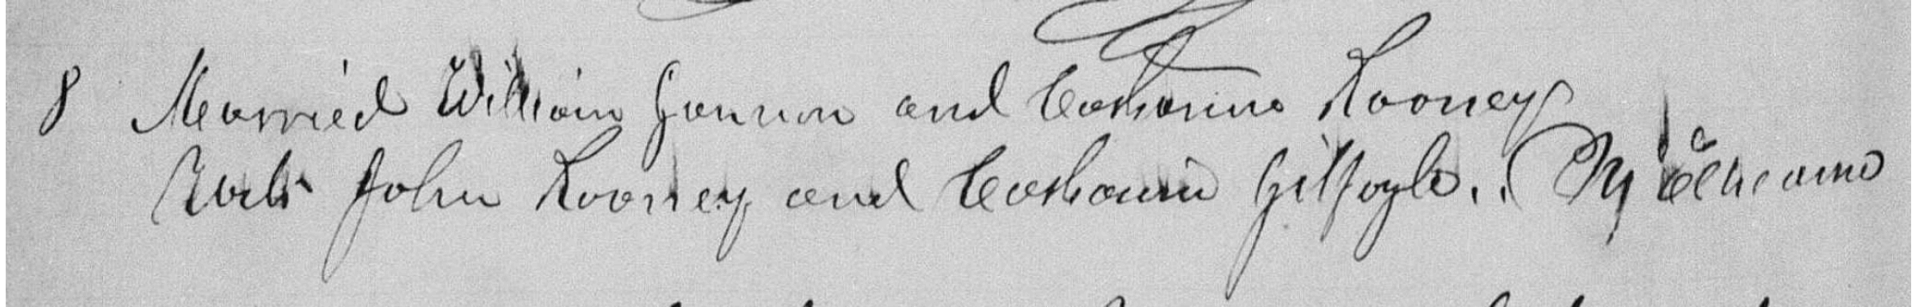 8 Married William Gannon and Catharine Rooney
John Rooney and Catharine Gilfoyle..